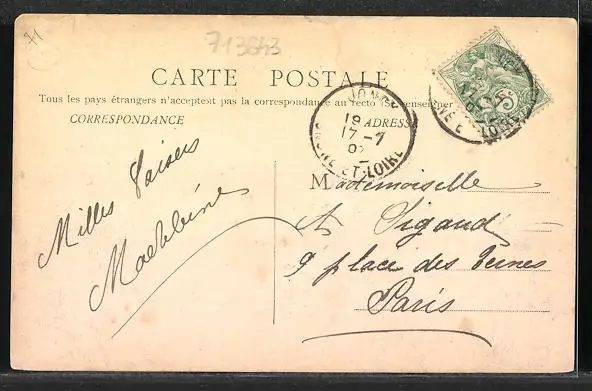 71
713643
CARTE POSTALE
Tous les pays étrangers n'acceptent pas la correspondance au recto (Se renseigner
CORRESPONDANCE
ADRESSE
19
17-7
07
SAONE-ET-LOIRE
5
Milles Baisers
Madeleine
Mademoiselle
A Sigaud
9 place des Ternes
Paris